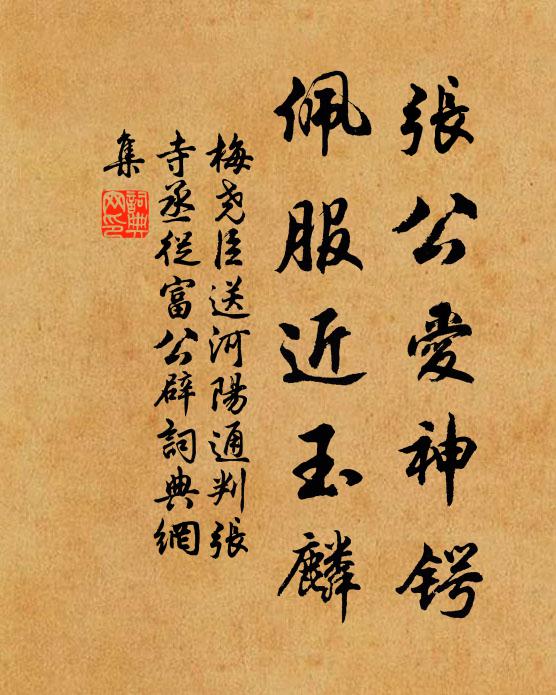 張公愛神鍔
佩服近玉麟
梅堯臣送河陽通判張
寺丞從富公辟詞典網
集
詞典
网印